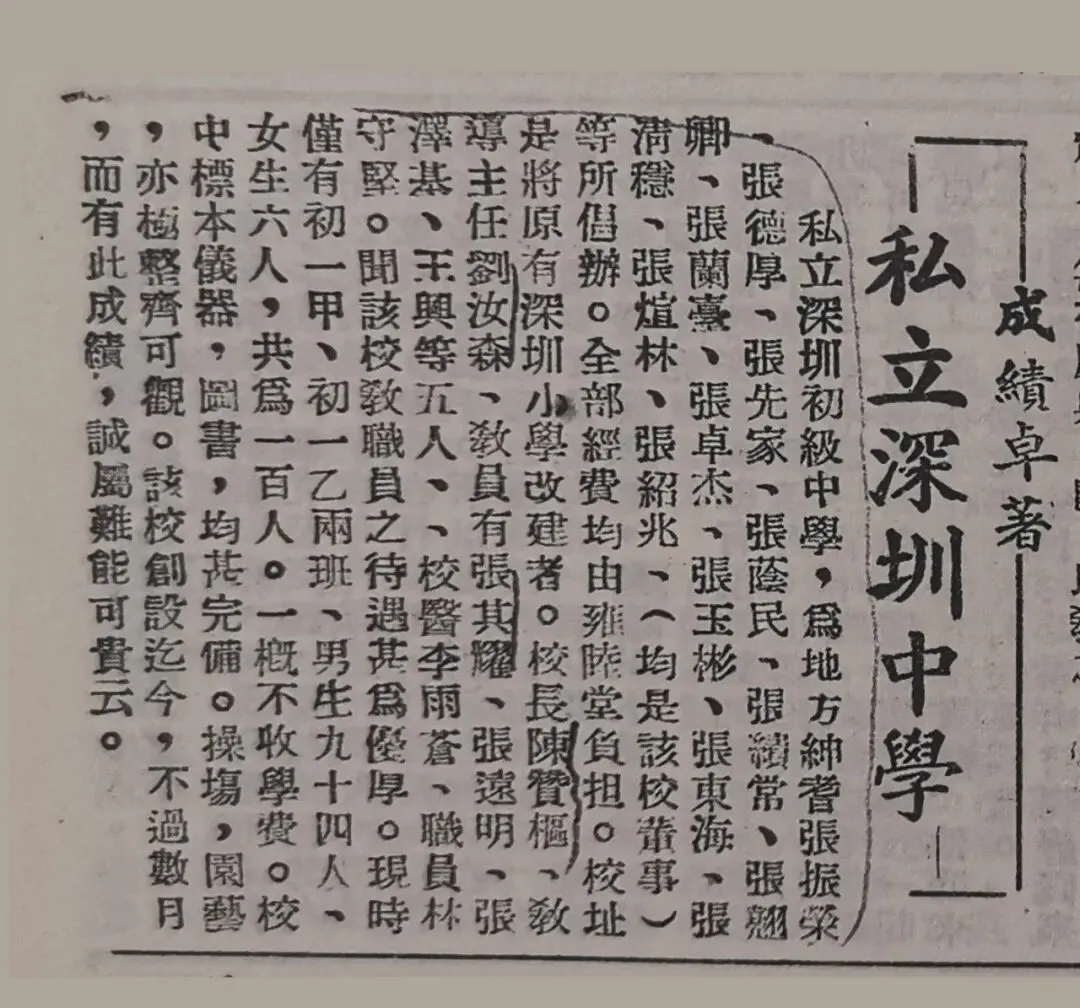 成績卓著
私立深圳中學
私立深圳初級中學，爲地方紳耆張振榮
、張德厚、張先家、張蔭民、張纘常、張翹
卿、張蘭臺、張卓杰、張玉彬、張東海、張
清穩、張煊林、張紹兆、（均是該校董事）
等所倡辦。全部經費均由雍睦堂負担。校址
是將原有深圳小學改建者。校長陳贊樞、敎
導主任劉汝森、敎員有張其耀、張遠明、張
澤基、王興等五人、、校醫李雨蒼、職員林
守堅。聞該校敎職員之待遇甚爲優厚。現時
僅有初一甲、初一乙兩班、男生九十四人、
女生六人，共爲一百人。一概不收學費。校
中標本儀器，圖書，均甚完備。操塲，園藝
，亦極整齊可觀。該校創設迄今，不過數月
，而有此成績，誠屬難能可貴云。